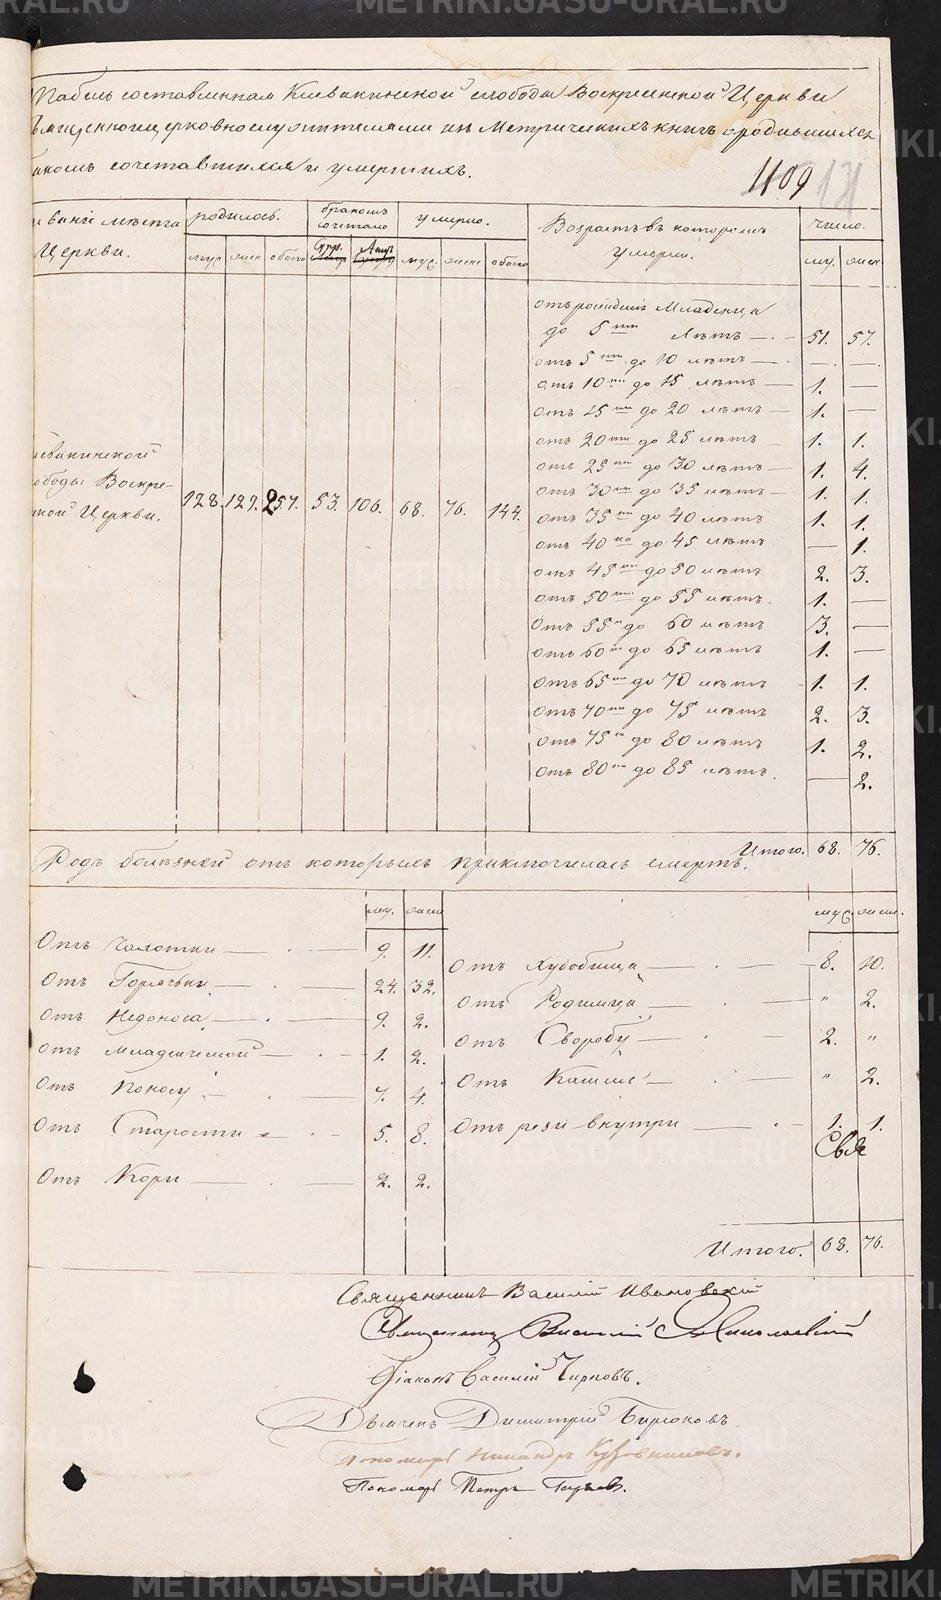 METRIKI.GASU-URAL.RU
Табель составленная Киевакинской слободы Воскресенской Церкви
священноцерковнослужителями изъ Метрическихъ книгъ о родившихся
бракомъ сочетавшихся и умершихъ.
1109 121
званіе мѣста Церкви.
родилось.
бракомъ сочетано
умерло.
Возрастъ въ которомъ умерли.
число.
муж. женс. обоего муж. женс. обоего му. женс
отъ рожденія Младенца
до 5ти лѣтъ — 51. 57.
отъ 5ти до 10 лѣтъ — — —
отъ 10ти до 15 лѣтъ — 1. —
отъ 15ти до 20 лѣтъ — 1. —
отъ 20ти до 25 лѣтъ — 1. 1.
отъ 25ти до 30 лѣтъ — 1. 4.
отъ 30ти до 35 лѣтъ — 1. 1.
отъ 35ти до 40 лѣтъ 1. 1.
отъ 40ка до 45 лѣтъ — 1.
отъ 45ти до 50 лѣтъ 2. 3.
отъ 50ти до 55 лѣтъ. 1. —
отъ 55ти до 60 лѣтъ 3. —
отъ 60ти до 65 лѣтъ 1. —
отъ 65ти до 70 лѣтъ 1. 1.
отъ 70ти до 75 лѣтъ 2. 3.
отъ 75ти до 80 лѣтъ 1. 2.
отъ 80ти до 85 лѣтъ. — 2.
евакинской
ободы Воскре-
ной Церкви. 128. 129. 257. 53. 106. 68. 76. 144.
Итого. 68. 76.
Родъ болѣзней отъ которыхъ приключилась смерть.
му. женс
муж. женс.
Отъ Чахотки — 9. 11.
Отъ Горячки — 24. 32.
Отъ Недоноса — 9. 2.
Отъ младенческой — 1. 2.
Отъ Поносу — 7. 4.
Отъ Старости — 5. 8.
Отъ Кори — 2. 2.
Отъ Худобища — 8. 10.
Отъ Родимца — " 2.
Отъ Своробу — 2. "
Отъ Кашля — " 2.
Отъ рези внутри — 1. 1.
Итого. 68. 76.
Священникъ Василій Ивановскій
Священникъ Василій Николаевскій
Діаконъ Василій Чирковъ.
Дьячекъ Димитрій Бирюковъ
Пономарь Никандръ Кузовниковъ.
Пономарь Петръ